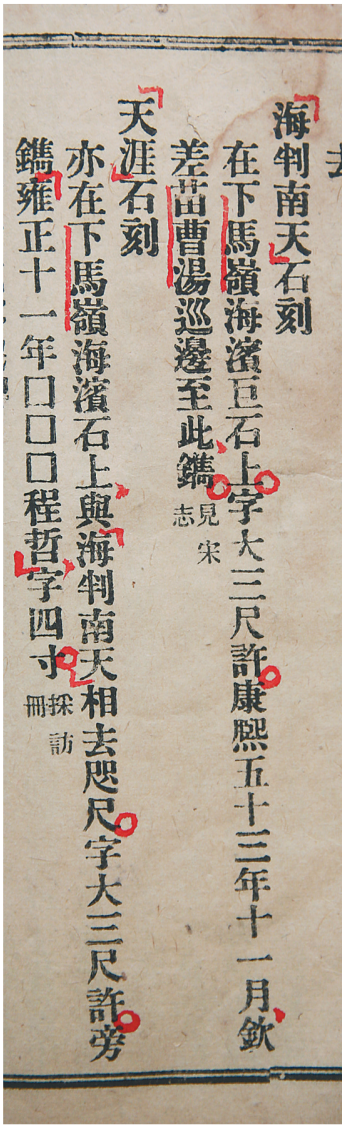 海判南天石刻
在下馬嶺海濱巨石上字大三尺許康熙五十三年十一月欽
差苗曹湯巡邊至此鐫見宋志
天涯石刻
亦在下馬嶺海濱石上與海判南天相去咫尺字大三尺許旁
鐫雍正十一年□□□程哲字四寸採訪冊